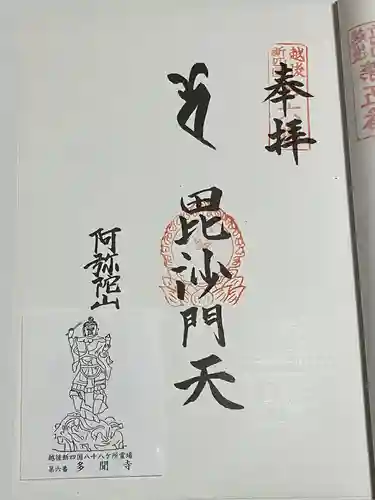 奉拝
毘沙門天
阿弥陀山
越後新四国八十八ケ所霊場
第六番 多聞寺